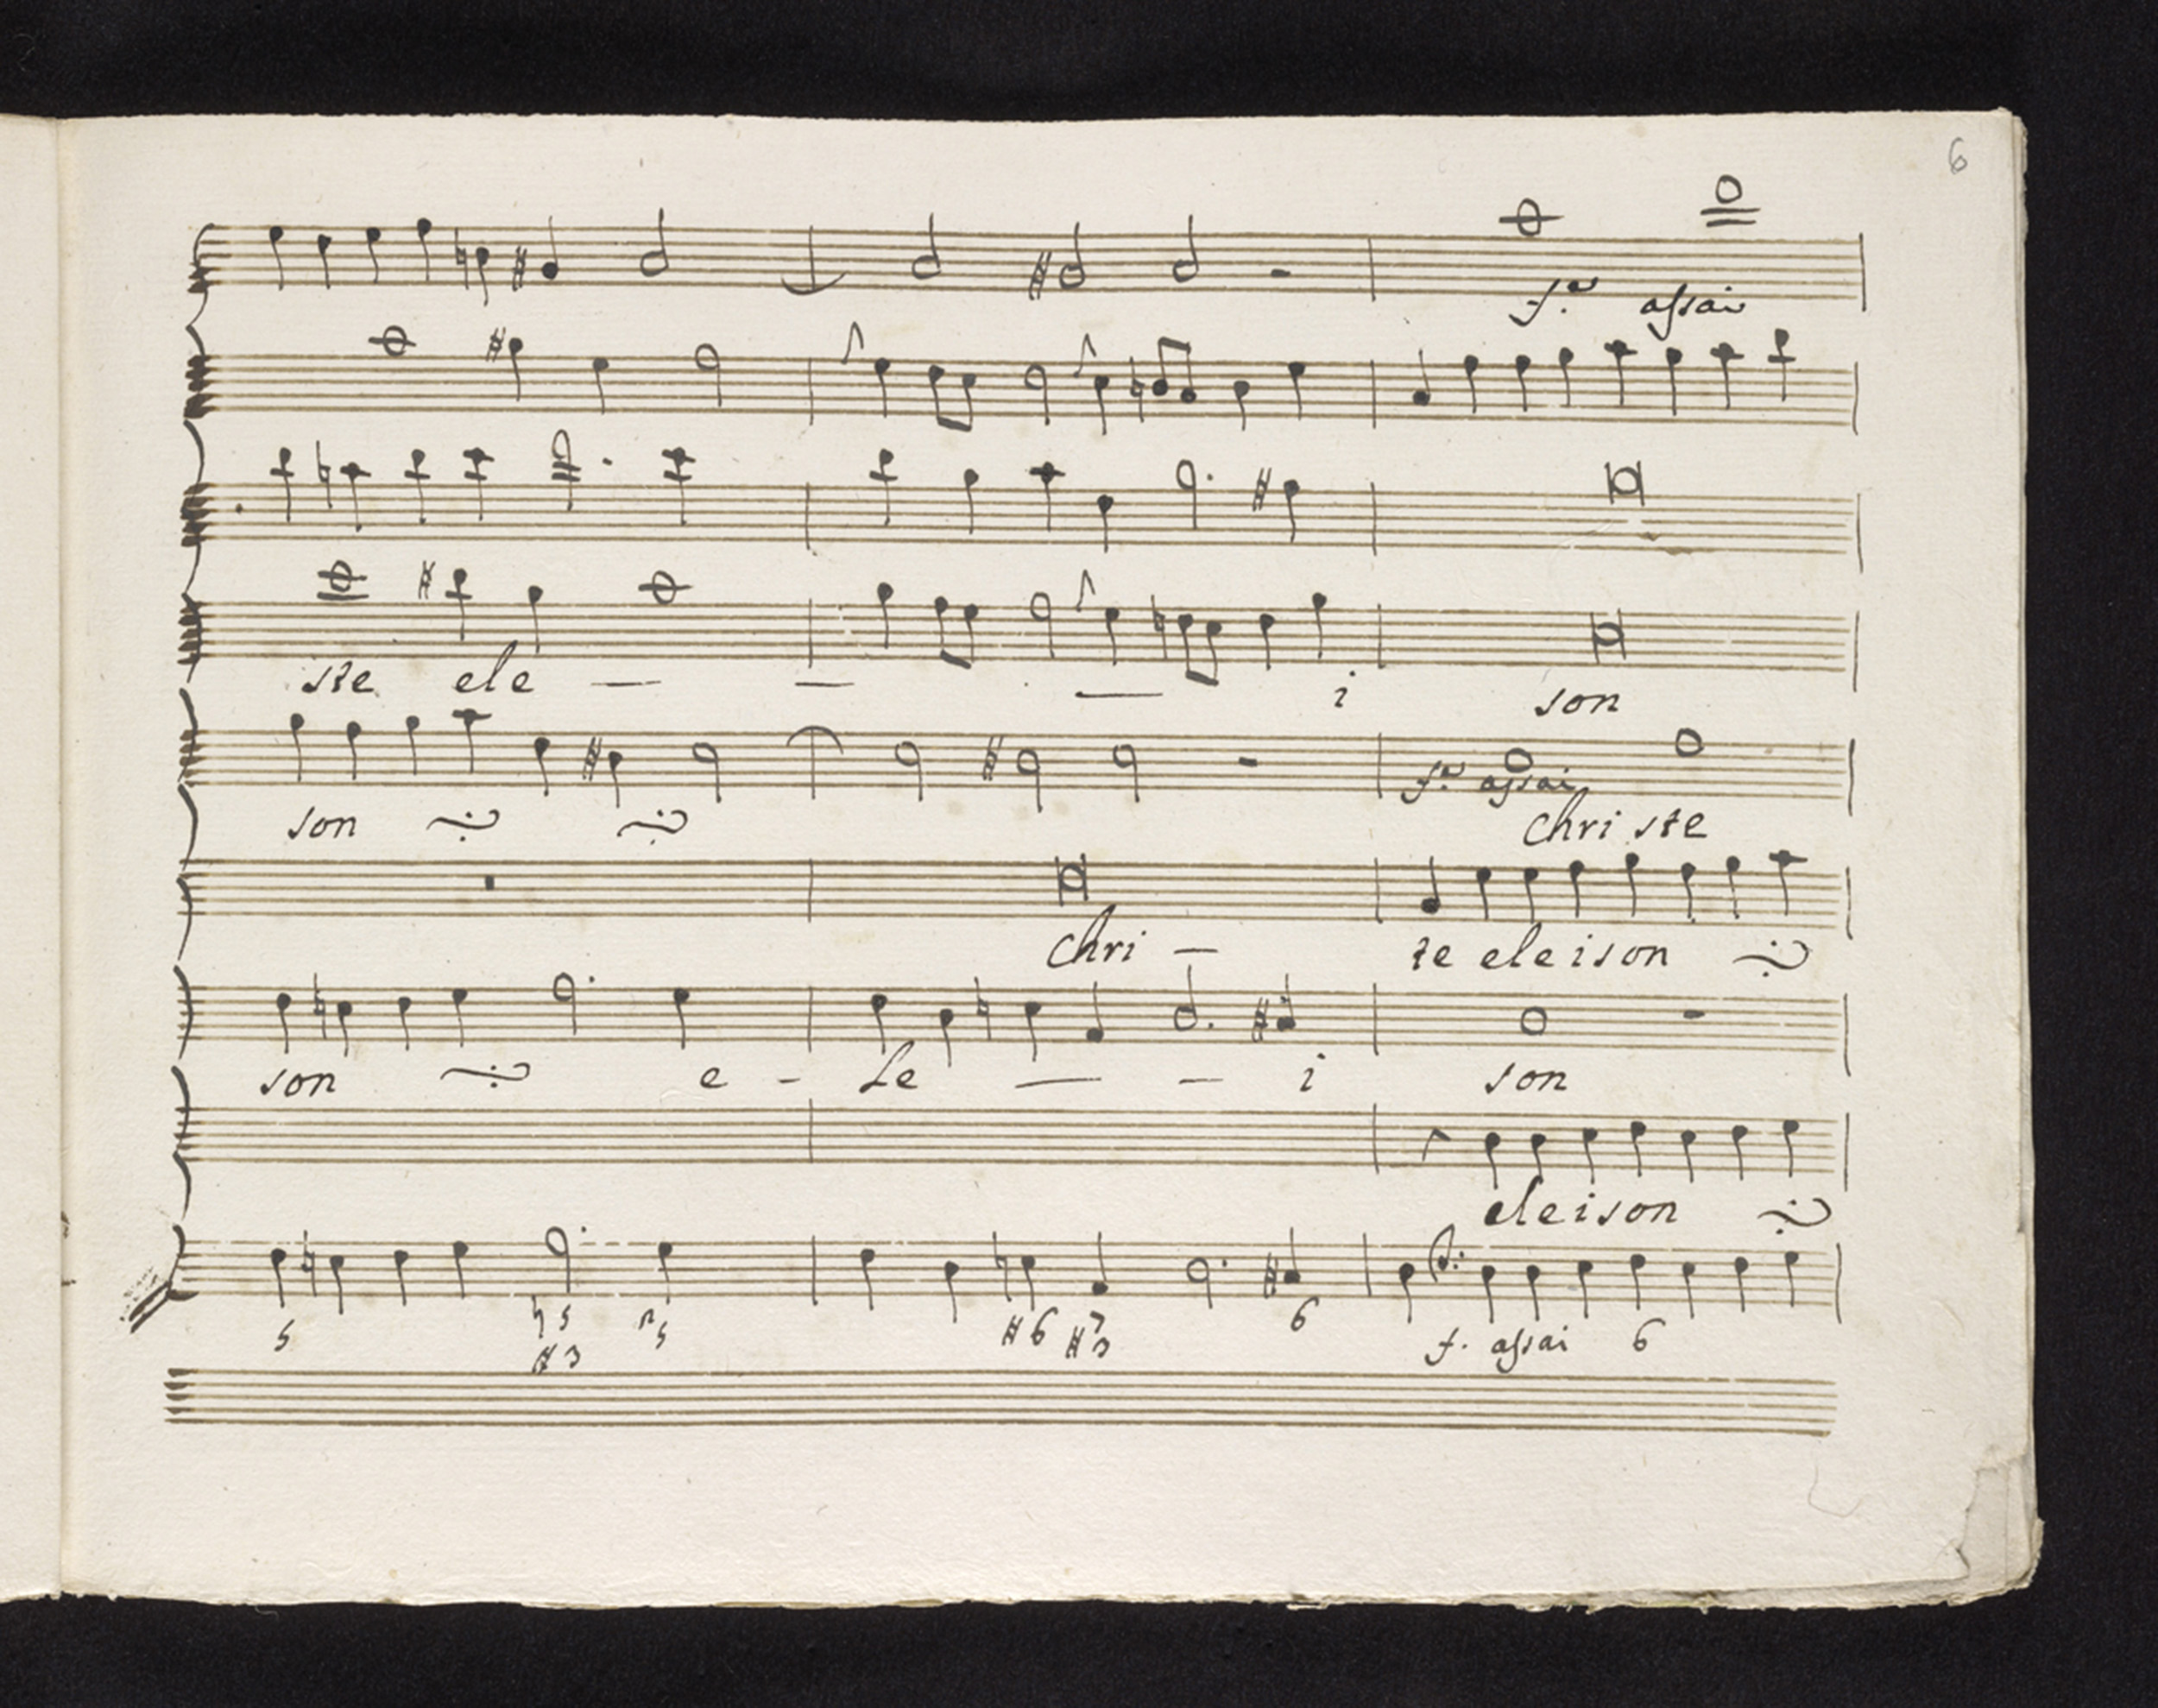 6
f.e assai
ste ele — — — i son
f.e assai
son Christe
Chri — te eleison
son e - le — — i son
eleison
5 ♮5 5 ♯6 7 6 f. assai 6
♯3 ♯3